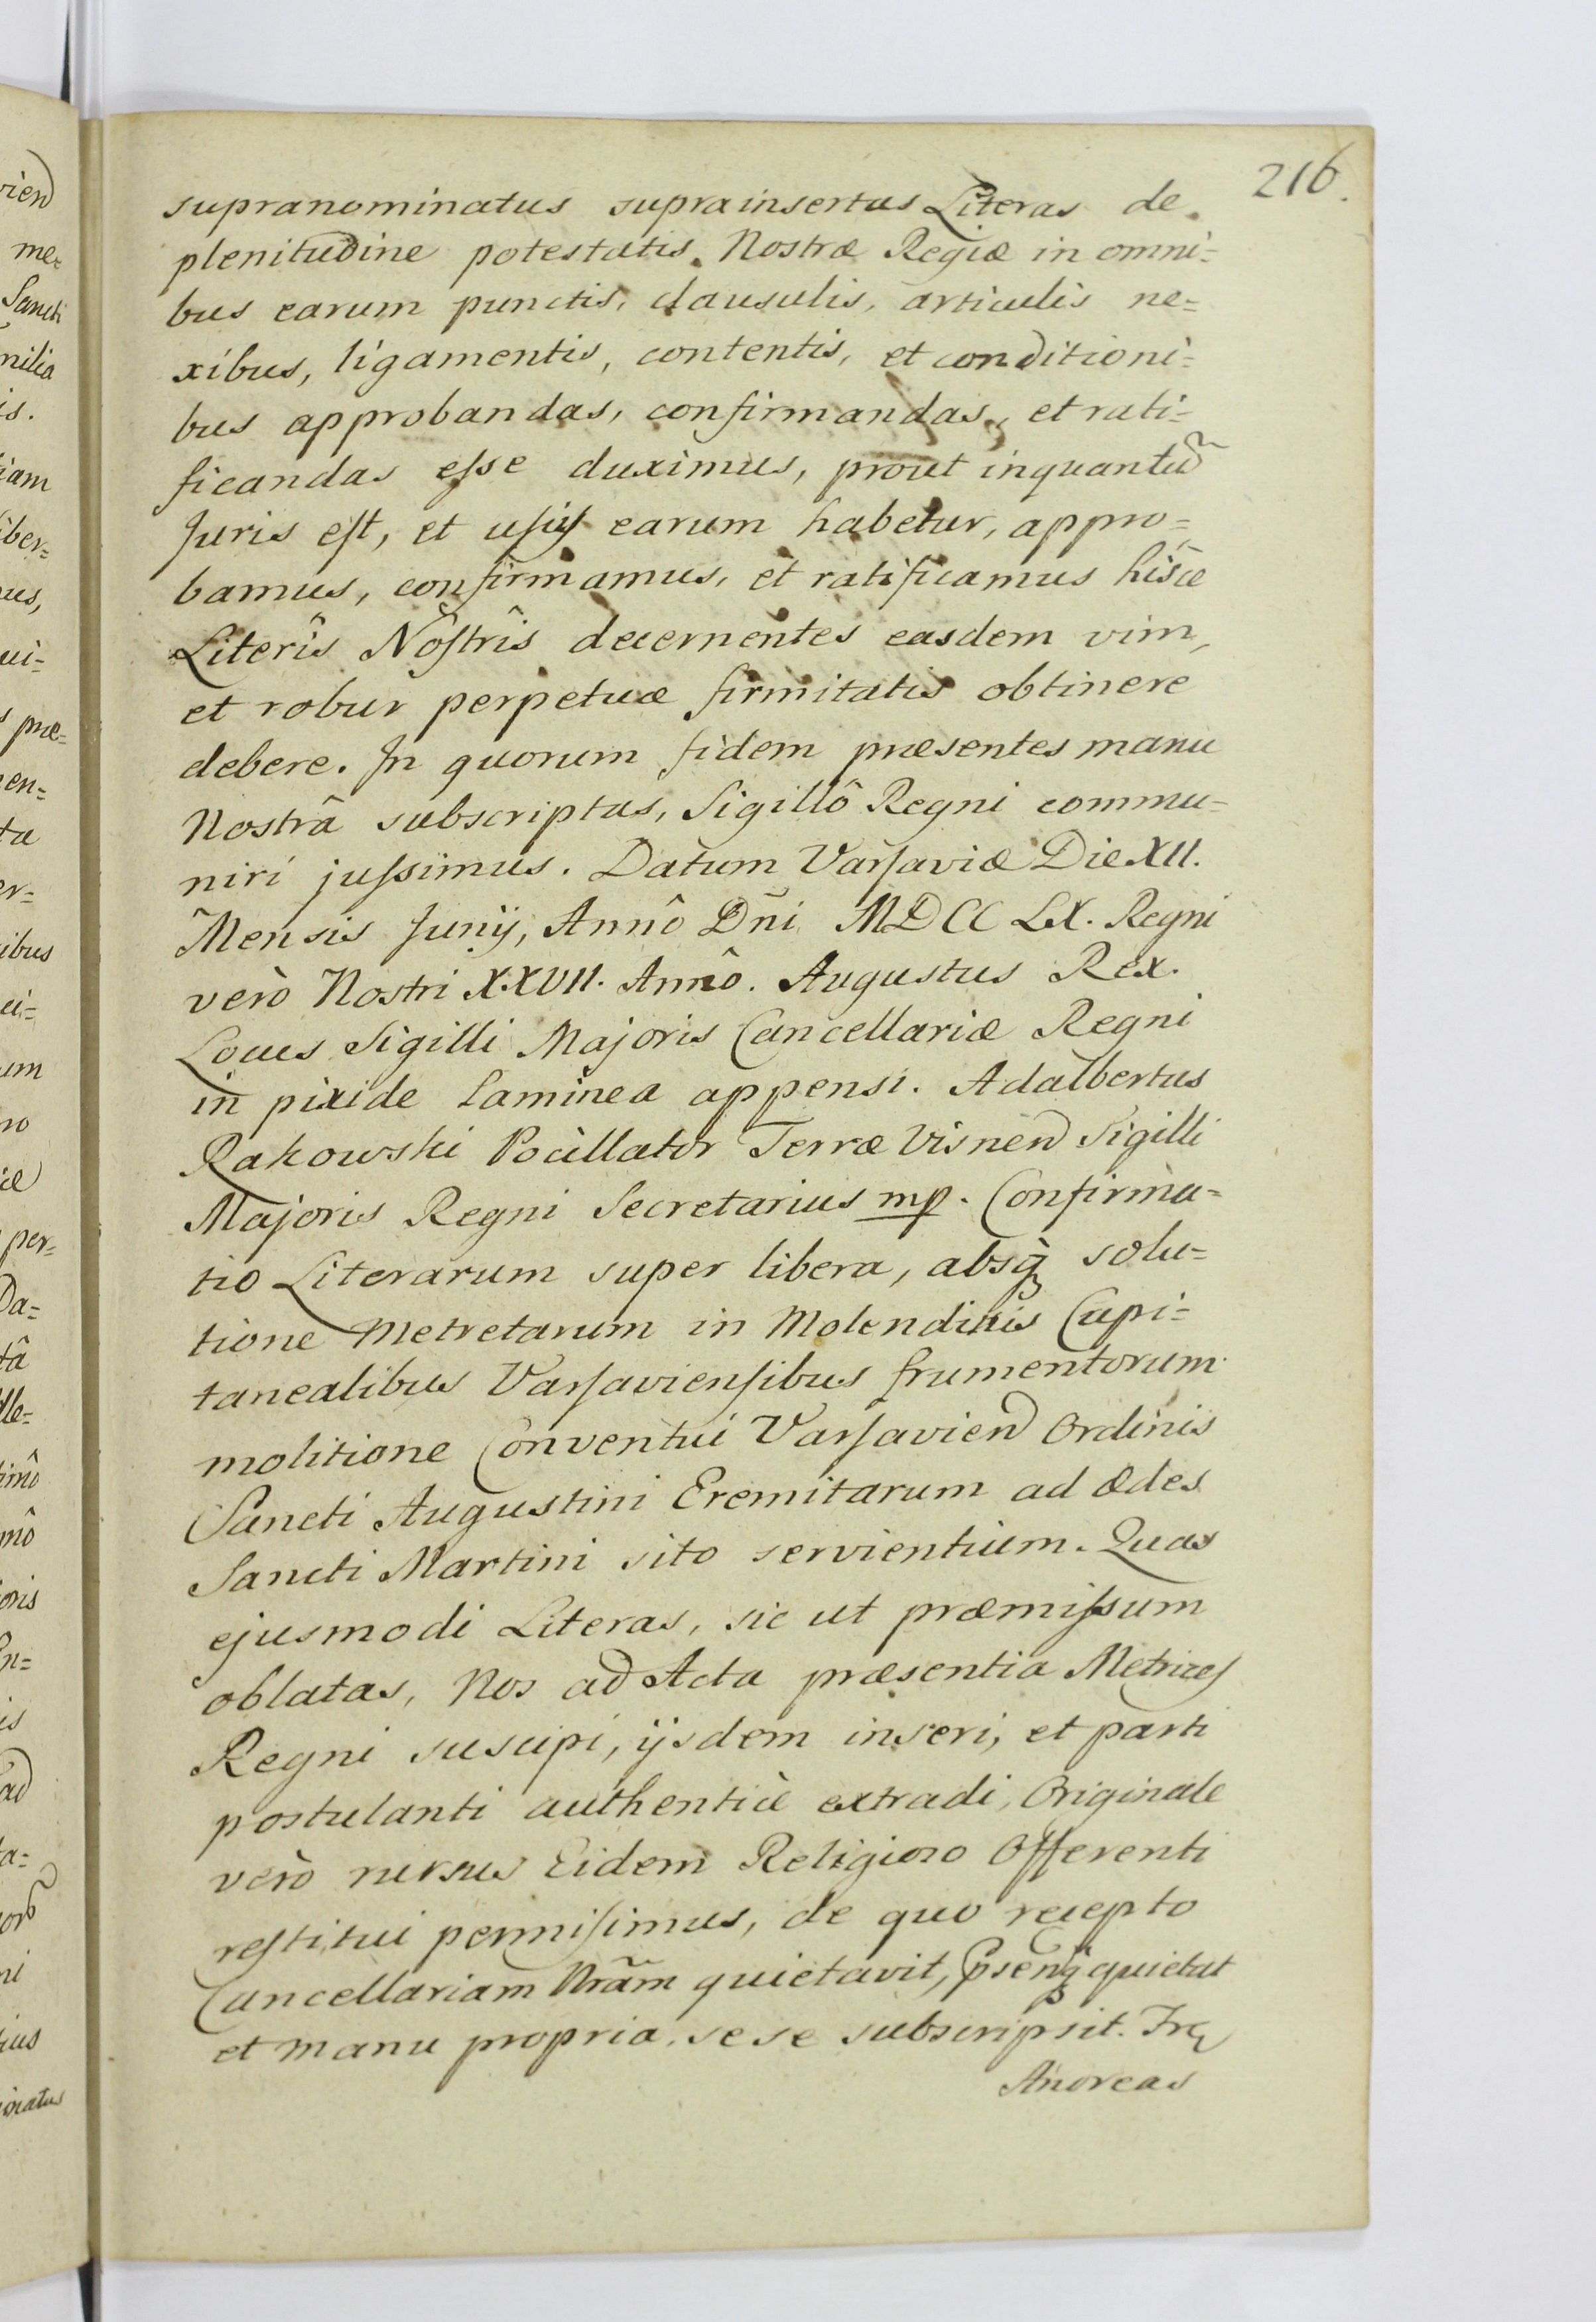 216.
supranominatus suprainsertas Literas de
plenitudine potestatis Nostræ Regiæ in omni=
bus earum punctis, clausulis, articulis ne=
xibus, ligamentis, contentis, et conditioni=
bus approbandas, confirmandas, et rati=
ficandas esse duximus, prout inquantū
Juris est, et usus earum habetur, appro=
bamus, confirmamus, et ratificamus hisce
Literîs Nostrîs decernentes easdem vim,
et robur perpetuæ firmitatis obtinere
debere. In quorum fidem præsentes manu
Nostrâ subscriptas, Sigillô Regni commu=
niri jussimus. Datum Varsaviæ Die XII.
Mensis Junij, Annô Dñi MDCCLX. Regni
verò Nostri XXVII. Annô. Augustus Rex.
Locus Sigilli Majoris Cancellariæ Regni
in pixide laminea appensi. Adalbertus
Rakowski Pocillator Terræ Visnen Sigilli
Majoris Regni Secretarius mp. Confirma=
tio Literarum super libera, absq solu=
tione Metretarum in Molendinis Capi=
tanealibus Varsaviensibus frumentorum
molitione Conventui Varsavien Ordinis
Sancti Augustini Eremitarum ad Ædes
Sancti Martini sito servientium. Quas
ejusmodi Literas, sic ut præmissum
oblatas, Nos ad Acta præsentia Metrices
Regni suscipi, ijsdem inseri, et parti
postulanti authenticè extradi, Originale
verò rursus Eidem Religioso Offerenti
restitui permisimus, de quo recepto
Cancellariam Nrãm quietavit, Pñsenq quietat
et manu propria sese subscripsit. Fr
Andreas
vien
me=
Sancti
milia
is.
iam
iber=
ui=
præ=
en=
ta
er=
ibus
ci=
um
no
per=
Da=
tâ
lle=
mô
oris
is
ad
ta=
ni
ius
inatus